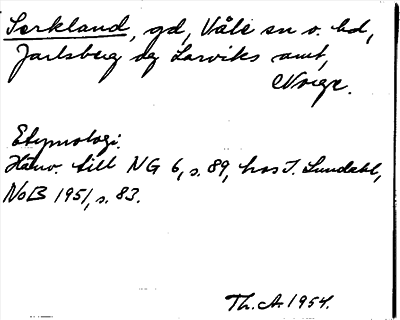 Serkland, gd, Våle sn o. hd,
Jarlsberg og Larviks amt,
Norge.
Etymologi.
Hänv. till NG 6, s. 89, hos I. Lundahl,
NoB 1951, s. 83.
Th. A. 1954.